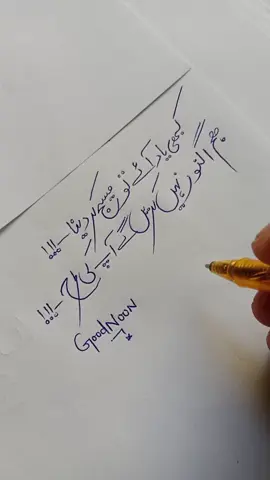 کبھی یاد آئے تو میسج کر دینا ۔۔۔!!!
ہم اگنور نہیں کریں گے آپ کی طرح ۔۔۔!!!
Good Noon